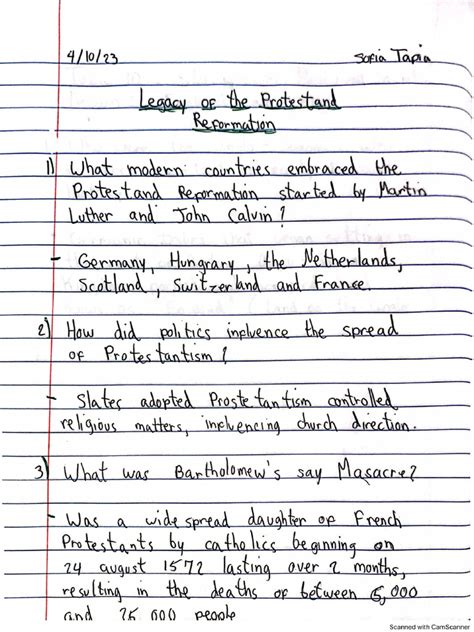 4/10/23 Sofia Tapia
Legacy of the Protestand
Reformation
1) What modern countries embraced the
Protestand Reformation started by Martin
Luther and John Calvin?
- Germany, Hungrary, the Netherlands,
Scotland, Switzerland and France.
2) How did politics influence the spread
of Protestantism?
- Slates adopted Prostetantism controlled
religious matters, influencing church direction.
3) What was Bartholomew's say Masacre?
- Was a wide spread daughter of French
Protestants by catholics beginning on
24 august 1572 lasting over 2 months,
resulting in the deaths of between 5,000
and 25 000 people
Scanned with CamScanner